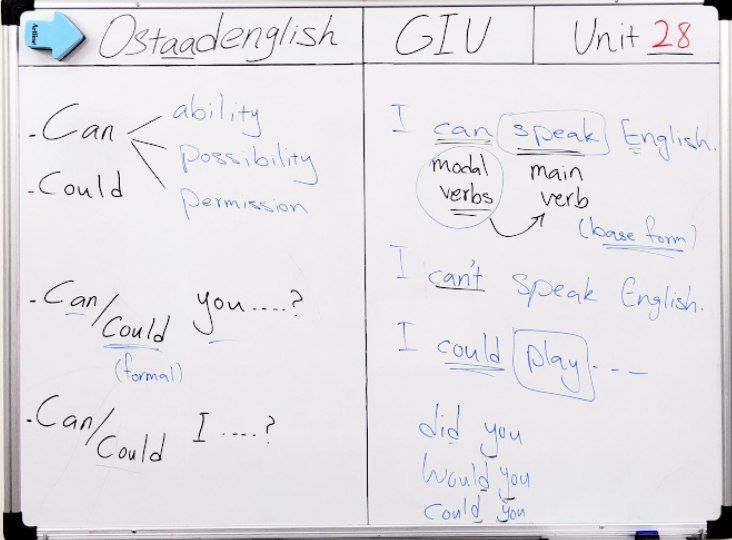 Ostaadenglish
GIU
Unit 28
Artline
- Can
ability
possibility
permission
- Could
- Can/Could you....?
(formal)
- Can/Could I ....?
I can speak English.
modal verbs
main verb
(base form)
I can't speak English.
I could play - - -
did you
Would you
Could you